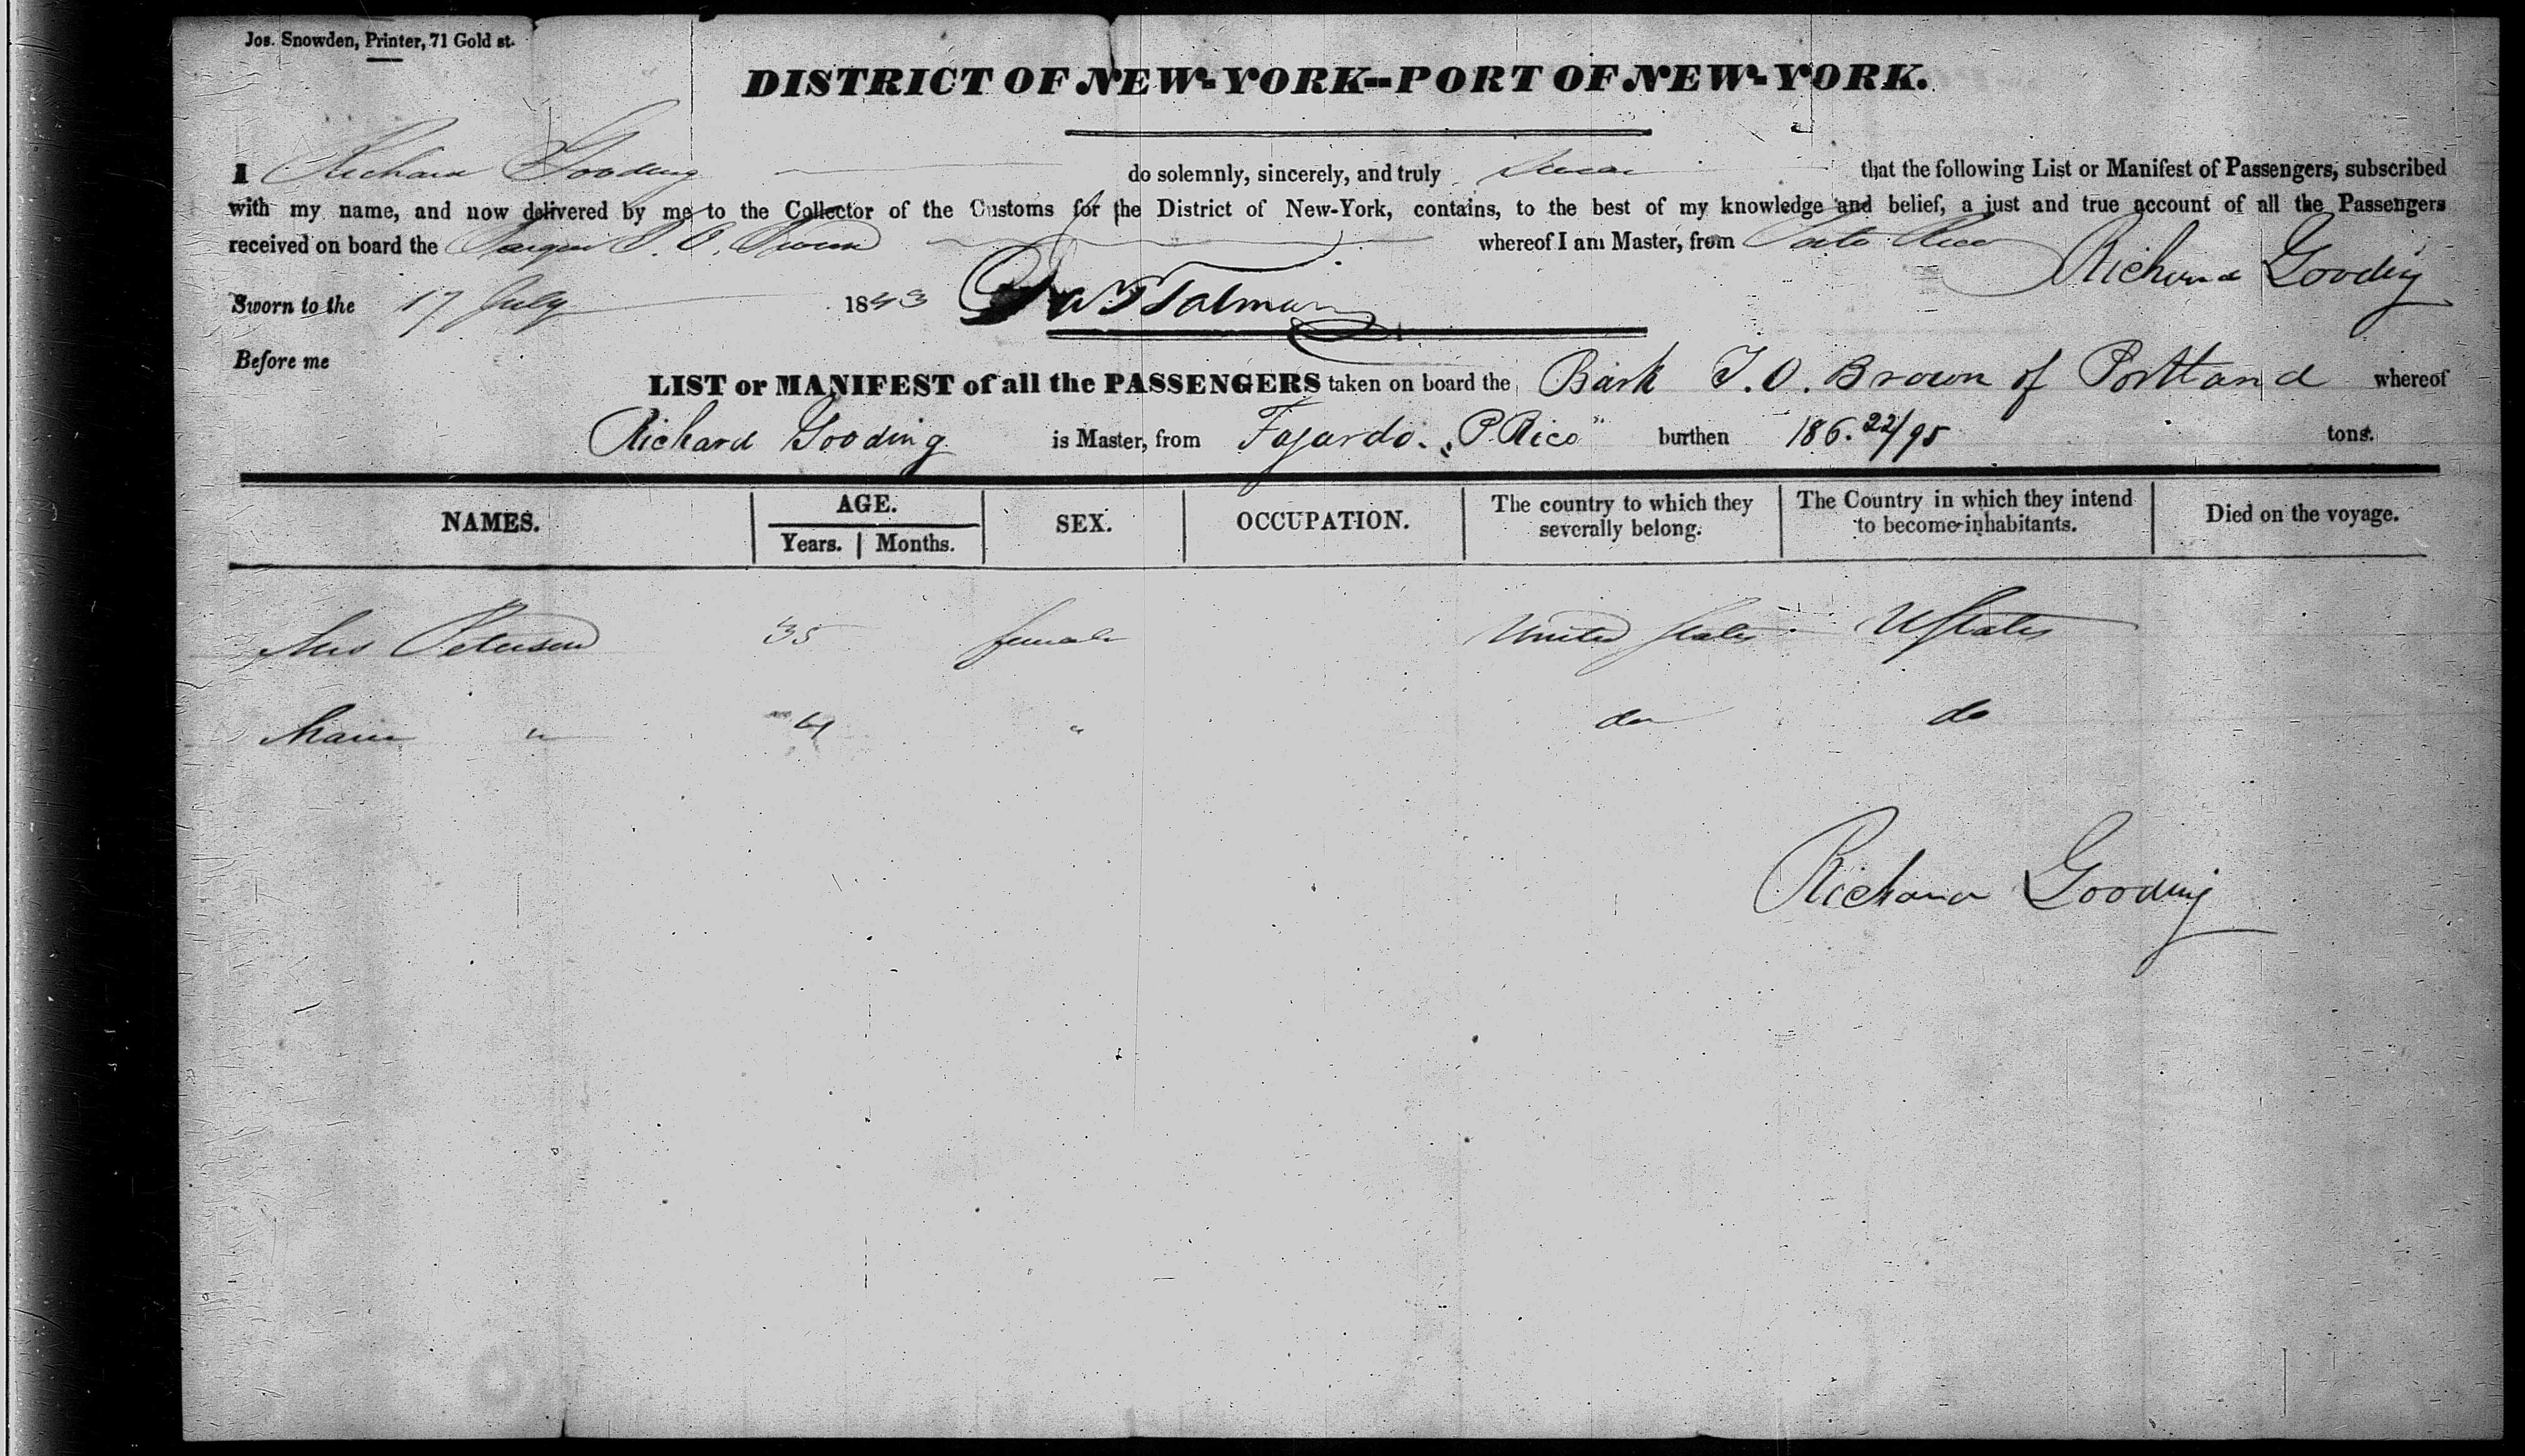 Jos. Snowden, Printer, 71 Gold st.
DISTRICT OF NEW-YORK--PORT OF NEW-YORK.
I Richard Gooding do solemnly, sincerely, and truly Swear that the following List or Manifest of Passengers, subscribed
with my name, and now delivered by me to the Collector of the Customs for the District of New-York, contains, to the best of my knowledge and belief, a just and true account of all the Passengers
received on board the Barque whereof I am Master, from Porto Rico
Richard Gooding
Sworn to the 17 July 1843
Before me
LIST or MANIFEST of all the PASSENGERS taken on board the Bark T.O. Brown of Portland whereof
Richard Gooding is Master, from Fajardo. "P. Rico" burthen 186. 22/95 tons.
NAMES. AGE. SEX. OCCUPATION. The country to which they severally belong. The Country in which they intend to become inhabitants. Died on the voyage.
Years. Months.
Mrs Peterson 35 female United States U States
" 4 " do do
Richard Gooding